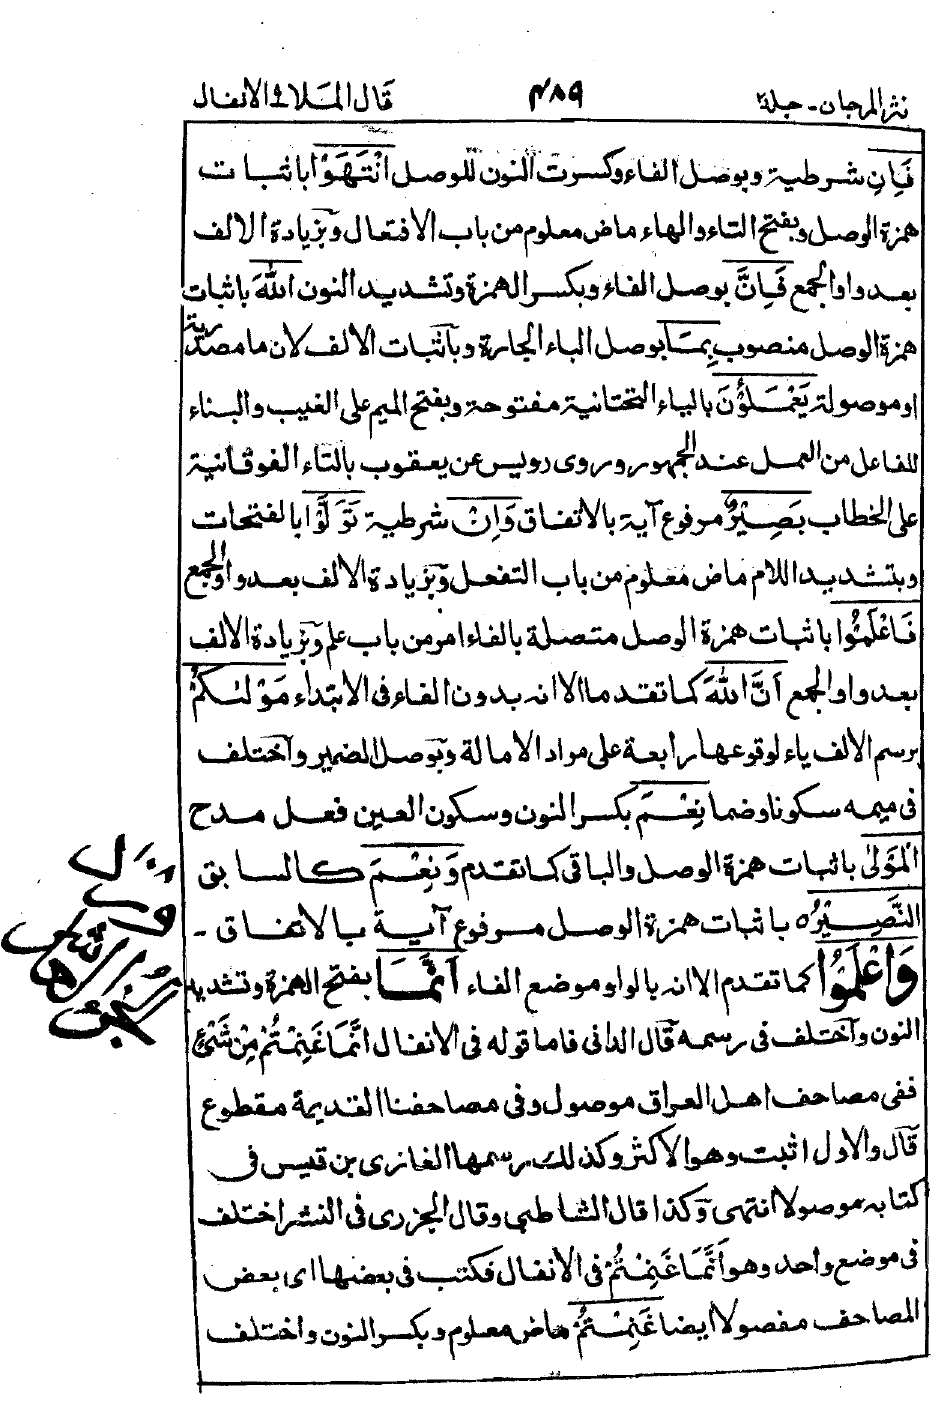 نثر المرجان - جلد٢ ٤٨٩ قال الملا الانفال
فَاِنِ شرطية وبوصل الفاء وكسرت النون للوصل انْتَهَوْا باثبات
همزة الوصل وبفتح التاء والهاء ماض معلوم من باب الافتعال وبزيادة الالف
بعد واو الجمع فَاِنَّ بوصل الفاء وبكسر الهمزة وتشديد النون اللّٰهَ باثبات
همزة الوصل منصوب بِمَا بوصل الباء الجارة وباثبات الالف لان ما مصدرية
او موصولة يَعْمَلُوْنَ بالياء التحتانية مفتوحة وبفتح الميم على الغيب والبناء
للفاعل من العمل عند الجمهور وروى رويس عن يعقوب بالتاء الفوقانية
على الخطاب بَصِيْرٌ مرفوع آية بالاتفاق وَاِنْ شرطية تَوَلَّوْا بالفتحات
وبتشديد اللام ماض معلوم من باب التفعل وبزيادة الالف بعد واو الجمع
فَاعْلَمُوْا باثبات همزة الوصل متصلة بالفاء امر من باب علم وبزيادة الالف
بعد واو الجمع اَنَّ اللّٰهَ كما تقدم الا انه بدون الفاء فى الابتداء مَوْلٰىكُمْ
برسم الالف ياء لوقوعها رابعة على مراد الامالة وبوصل الضمير واختلف
فى ميمه سكونا وضما نِعْمَ بكسر النون وسكون العين فعل مدح
الْمَوْلٰى باثبات همزة الوصل والباقى كما تقدم وَنِعْمَ كالسابق
النَّصِيْرُ ه باثبات همزة الوصل مرفوع آية بالاتفاق -
وَاعْلَمُوْا كما تقدم الا انه بالواو موضع الفاء اَنَّمَا بفتح الهمزة وتشديد
النون واختلف فى رسمه قال الدانى فاما قوله فى الانفال اَنَّمَا غَنِمْتُمْ مِنْ شَىْءٍ
ففى مصاحف اهل العراق موصول وفى مصاحفنا القديمة مقطوع
قال والاول اثبت وهو الاكثر وكذلك رسمها الغازى بن قيس فى
كتابه موصولا انتهى وكذا قال الشاطبى وقال الجزرى فى النشر اختلف
فى موضع واحد وهو اَنَّمَا غَنِمْتُمْ فى الانفال فكتب فى بعضها اى بعض
المصاحف مفصولا ايضا غَنِمْتُمْ ماض معلوم وبكسر النون واختلف
الجزء العاشر